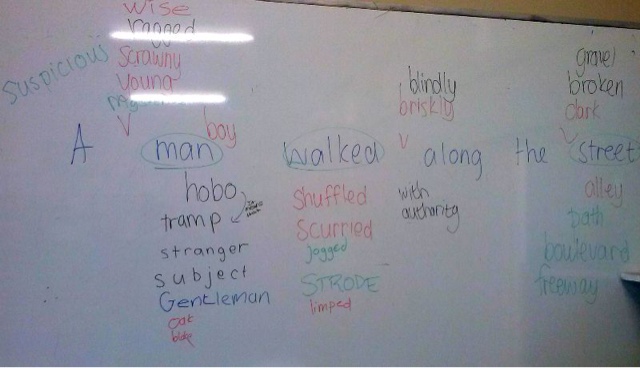 wise
ragged
scrawny
young
suspicious
boy
A man walked along the street
blindly
briskly
with
authority
gravel
broken
dark
hobo
tramp
stranger
subject
Gentleman
shuffled
scurried
jogged
STRODE
limped
alley
path
boulevard
freeway